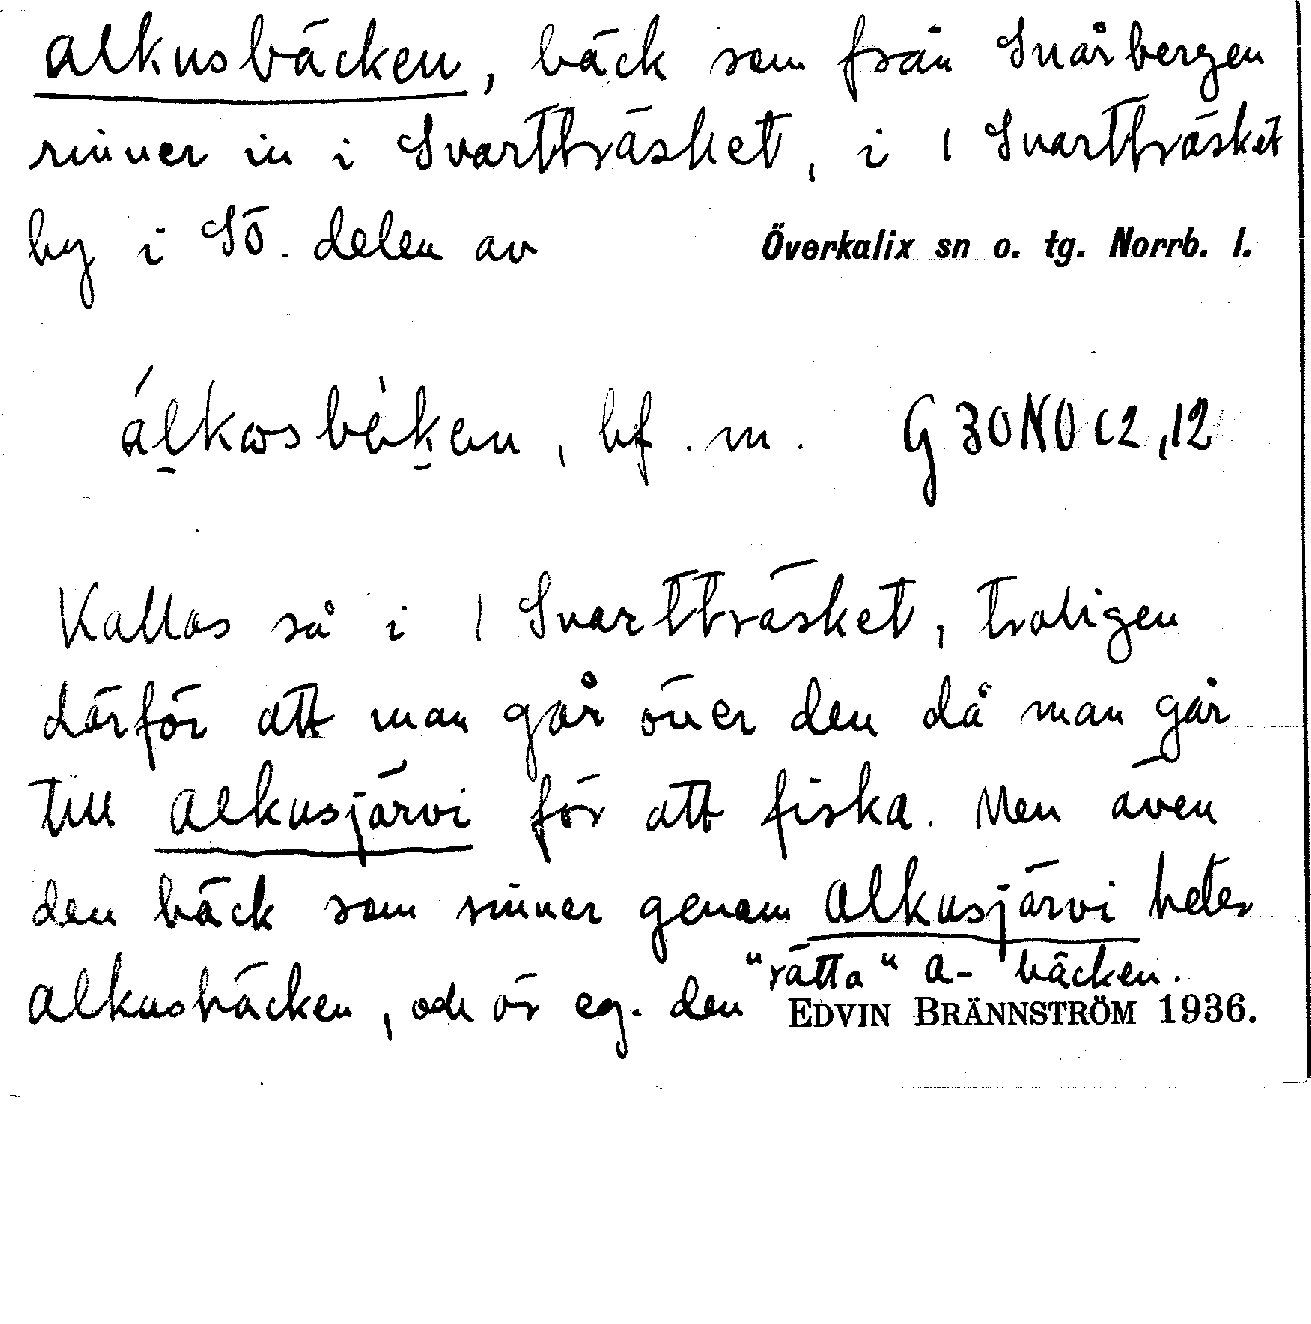 Alkusbäcken, bäck som från Snårbergen
rinner in i Svartträsket, i 1 Svartträsket
by i SÖ. delen av Överkalix sn o. tg. Norrb. l.
bf. m. G 30 NO c2, 12
Kallas så i 1 Svartträsket, troligen
därför att man går över den då man går
till Alkusjärvi för att fiska. Men även
den bäck som rinner genom Alkusjärvi heter
Alkusbäcken, och är eg. den "rätta" A-bäcken.
EDVIN BRÄNNSTRÖM 1936.